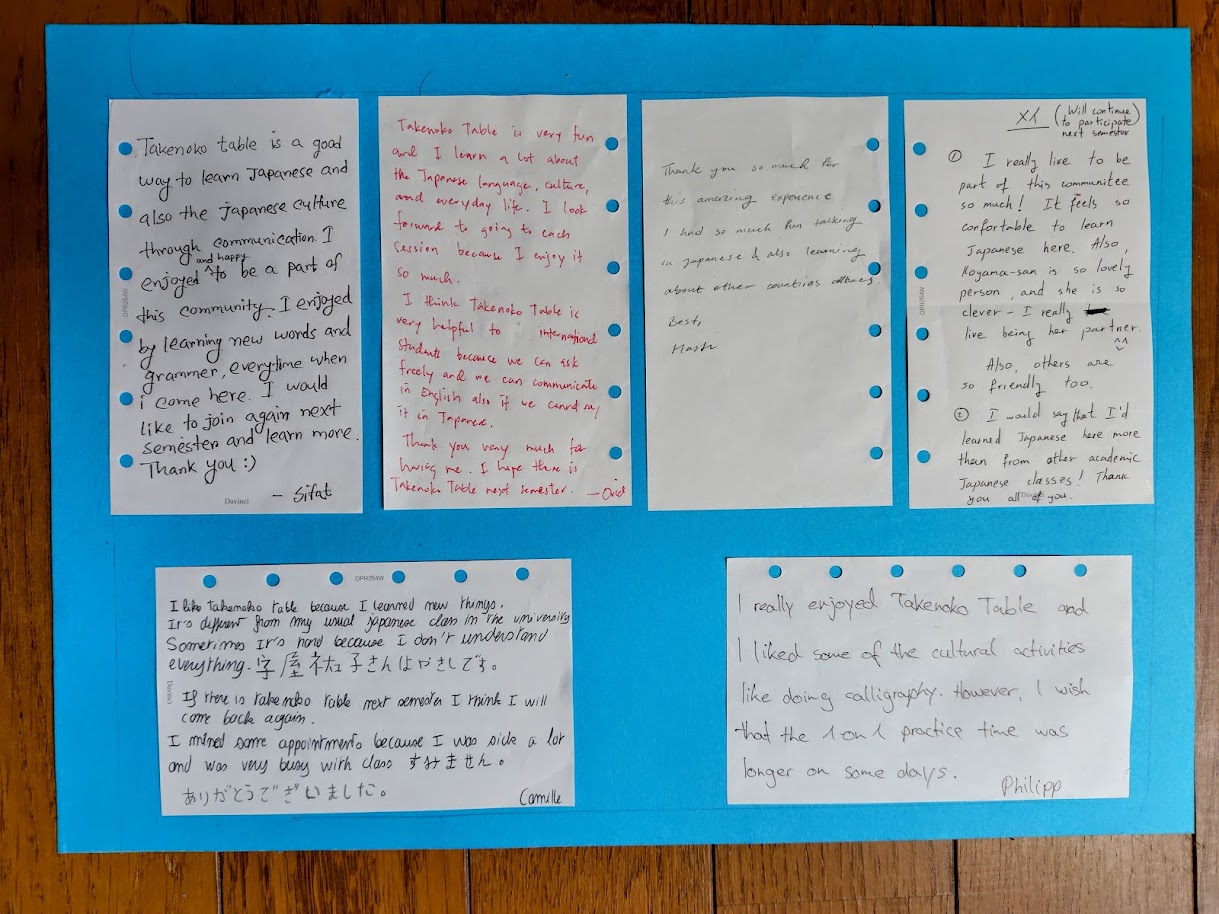 Takenoko table is a good
way to learn Japanese and
also the japanese culture
through communication. I
and happy
enjoyed ^ to be a part of
this community. I enjoyed
by learning new words and
grammer, everytime when
i come here. I would
like to join again next
semester and learn more.
Thank you :)
Davinci
- Sifat
Takenoko Table is very fun
and I learn a lot about
the Japanese language, culture,
and everyday life. I look
forward to going to each
session because I enjoy it
so much.
I think Takenoko Table is
very helpful to international
students because we can ask
freely and we can communicate
in English also if we cannot say
it in Japanese.
Thank you very much for
having me. I hope there is
Takenoko Table next semester.
Thank you so much for
this amazing experience
I had so much fun talking
in japanese & also learning
about other countries
Best,
X1 (Will continue
to participate
next semester)
① I really like to be
part of this communitee
so much! It feels so
confortable to learn
Japanese here. Also,
Koyama-san is so lovely
person, and she is so
clever - I really
live being her partner.
^^
Also, others are
so friendly too.
② I would say that I'd
learned Japanese here more
than from other academic
Japanese classes! Thank
you all of you.
Davinci
DPR264W
DPR264W
DPR264W
I like takenoko table because I learned new things.
It's different from my usual japanese class in the university
Sometimes it's hard because I don't understand
everything. 字屋祐子さんはやさしです。
If there is takenoko table next semester I think I will
come back again.
I missed some appointments because I was sick a lot
and was very busy with class すみません。
ありがとうでざいました。
Camille
Davinci
I really enjoyed Takenoko Table and
I liked some of the cultural activities
like doing calligraphy. However, I wish
that the 1 on 1 practice time was
longer on some days.
Philipp